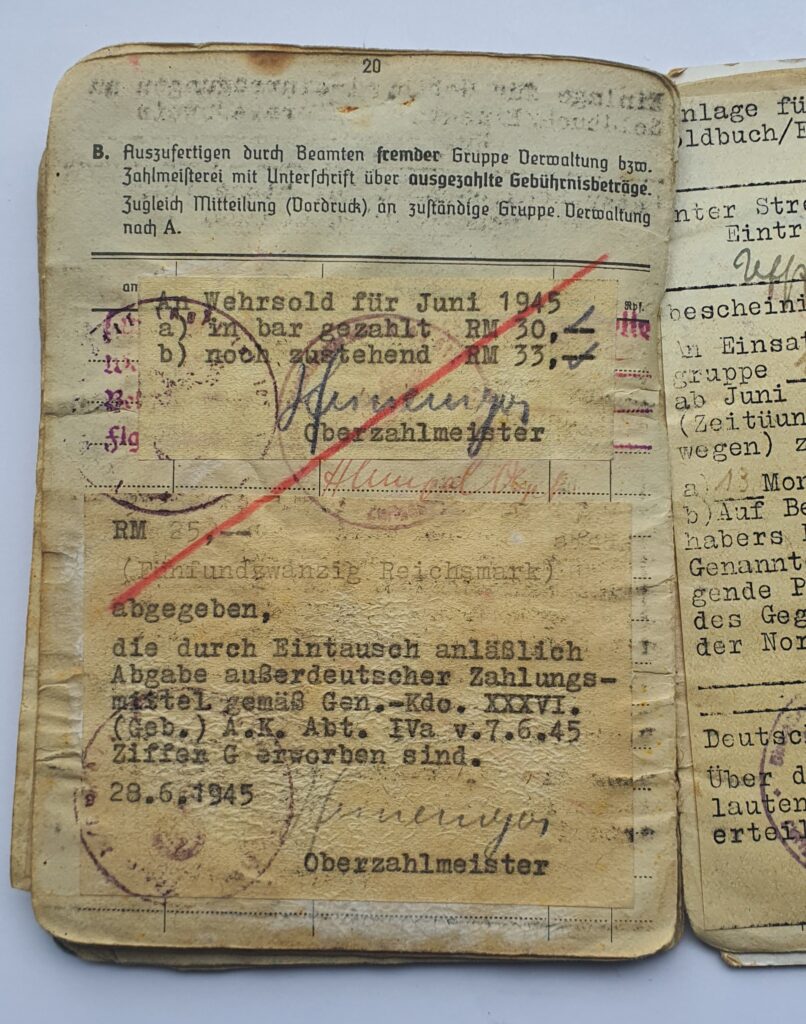 20
B. Auszufertigen durch Beamten fremder Gruppe Verwaltung bzw.
Zahlmeisterei mit Unterschrift über ausgezahlte Gebührnisbeträge.
Zugleich Mitteilung (Vordruck) an zuständige Gruppe. Verwaltung
nach A.
an
Rpf.
An Wehrsold für Juni 1945
a) in bar gezahlt RM 30,—
b) noch zustehend RM 33,—
Flg
Oberzahlmeister
RM 25,—
(Fünfundzwanzig Reichsmark)
abgegeben,
die durch Eintausch anläßlich
Abgabe außerdeutscher Zahlungs-
mittel gemäß Gen.-Kdo. XXXVI.
(Geb.) A.K. Abt. IVa v.7.6.45
Ziffer G erworben sind.
28.6.1945
Oberzahlmeister
nlage fü
oldbuch/E
nter Stre
Eintr
bescheini
An Einsat
gruppe
ab Juni
(Zeitüun
wegen) z
a) 13 Mon
b)Auf Be
habers
Genannt
gende P
des Geg
der Nor
Deutsc
Über d
lauten
erteil